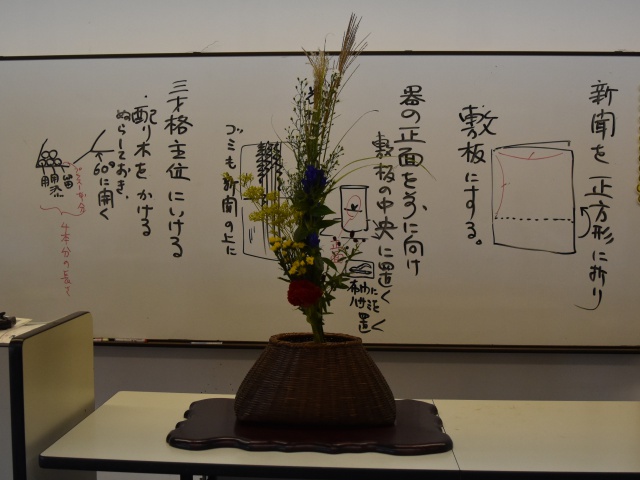 新聞を正方形に折り
敷板にする。
器の正面を
に向け
敷板の中央に置く
布巾に
置く
ゴミも新聞の上に
三才格主位にいける
・配り木をかける
ぬらしておき、
60°に開く
4本分の長さ